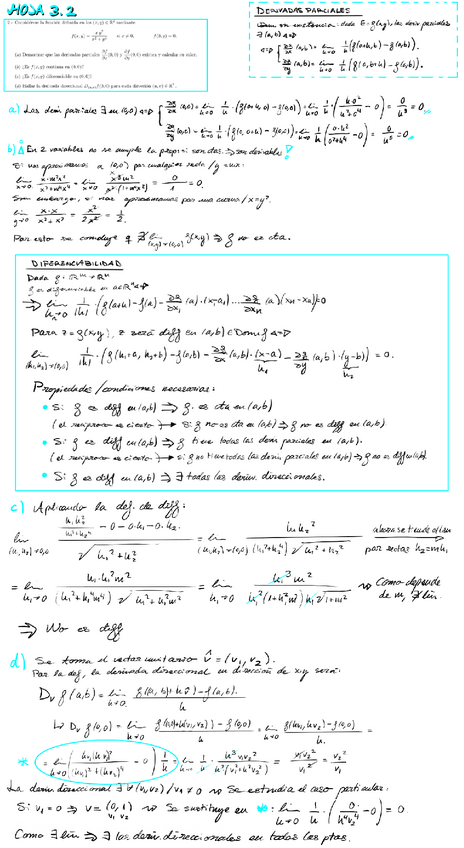 HOJA 3.2
2.- Considérese la función definida en los (x,y) ∈ R² mediante
f(x,y) = xy²/(x²+y⁴) si x ≠ 0, f(0,y) = 0.
(a) Demostrar que las derivadas parciales ∂f/∂x(0,0) y ∂f/∂y(0,0) existen y calcular su valor.
(b) ¿Es f(x,y) continua en (0,0)?
(c) ¿Es f(x,y) diferenciable en (0,0)?
(d) Hallar la derivada direccional D₍ᵤ,ᵥ₎f(0,0) para cada dirección (u,v) ∈ R².
DERIVADAS PARCIALES
dada z = g(x,y), las deriv parciales
∃ (a,b) ⇔
∂g/∂x (a,b) = lim h→0 1/h (g(a+h,b) − g(a,b)).
∂g/∂y (a,b) = lim h→0 1/h (g(a,b+h) − g(a,b)).
a) Las deriv parciales ∃ en (0,0) ⇔ ∂g/∂x (0,0) = lim h→0 1/h · (g(0+h,0) − g(0,0)) = lim h→0 1/h · (h·0²/(h²+0⁴) − 0) = 0/h³ = 0
∂g/∂y (0,0) = lim h→0 1/h · (g(0,0+h) − g(0,0)) = lim h→0 1/h (0·h²/(0²+h⁴) − 0) = 0/h³ = 0
b) En 2 variables no se cumple la
Si nos aproximamos a (0,0) por cualquier recta y = mx:
lim x→0 x·m²x²/(x²+m⁴x⁴) = lim x→0 = 0/1 = 0.
Sin embargo, si nos aproximamos por una curva x = y²:
lim y→0 x·x/(x²+x²) = x²/2x² = 1/2.
Por esto se concluye q ∄ lim (x,y)→(0,0) g(x,y) ⇒ g no es cta.
DIFERENCIABILIDAD
Dada g: ℝᵐ → ℝⁿ
g es diferenciable en a∈ℝⁿ ⇔
⇒ lim h→0 1/|h| · (g(a+h) − g(a) − ∂g/∂x₁ (a)·(x−a₁) ... ∂g/∂xₙ (a)(xₙ−xₐ)) = 0
Para z = g(x,y), z será diff en (a,b) ∈ Dom g ⇔
lim (h₁,h₂)→(0,0) 1/|h| · (g(h₁+a, h₂+b) − g(a,b) − ∂g/∂x (a,b)·(x−a) − ∂g/∂y (a,b)·(y−b)) = 0.
h₁ h₂
Propiedades/condiciones necesarias:
• Si g es diff en (a,b) ⇒ g es cta en (a,b)
(el recíproco es cierto) → Si g no es cta en (a,b) ⇒ g no es diff en (a,b)
• Si g es diff en (a,b) ⇒ g tiene todas las deriv parciales en (a,b).
(el recíproco es cierto) → si g no tiene todas las deriv parciales en (a,b) ⇒ g no es diff en (a,b)
• Si g es diff en (a,b) ⇒ ∃ todas las deriv. direccionales.
c) Aplicando la def. de diff:
lim (h₁,h₂)→0,0 (h₁h₂²/(h₁²+h₂⁴) − 0 − 0·h₁ − 0·h₂)/√(h₁²+h₂²) = lim (h₁,h₂)→(0,0) h₁h₂²/((h₁²+h₂⁴)√(h₁²+h₂²)) ahora se tiende al lim por rectas h₂=mh₁
= lim h₁→0 h₁·h₁²m²/((h₁²+h₁⁴m⁴)√(h₁²+h₁²m²)) = lim h₁→0 h₁³m²/(h₁²(1+h₁²m⁴)h₁√(1+m²)) Como depende de m, ∄ lim.
⇒ No es diff
d) Se toma el vector unitario v̂ = (v₁,v₂).
Por la def, la derivada direccional en dirección de x,y será:
Dᵥ g(a,b) = lim h→0 (g((a,b)+hv̂) − g(a,b))/h.
↳ Dᵥ g(0,0) = lim h→0 (g((0,0)+h(v₁,v₂)) − g(0,0))/h = lim h→0 (g(hv₁,hv₂) − g(0,0))/h =
* = lim h→0 (hv₁(hv₂)²/((hv₁)²+(hv₂)⁴) − 0) 1/h = lim h→0 1/h · h³v₁v₂²/(h²(v₁²+h²v₂⁴)) = v₁v₂²/v₁² = v₂²/v₁
La deriv direccional ∃ ∀(v₁,v₂)/v₁≠0 Se estudia el caso particular:
Si v₁ = 0 ⇒ v = (0,1) Se sustituye en *: lim h→0 1/h · (0/h⁴v₂⁴ − 0) = 0.
v₁ v₂
Como ∃ lim ⇒ ∃ las deriv. direccionales en todos los ptos.